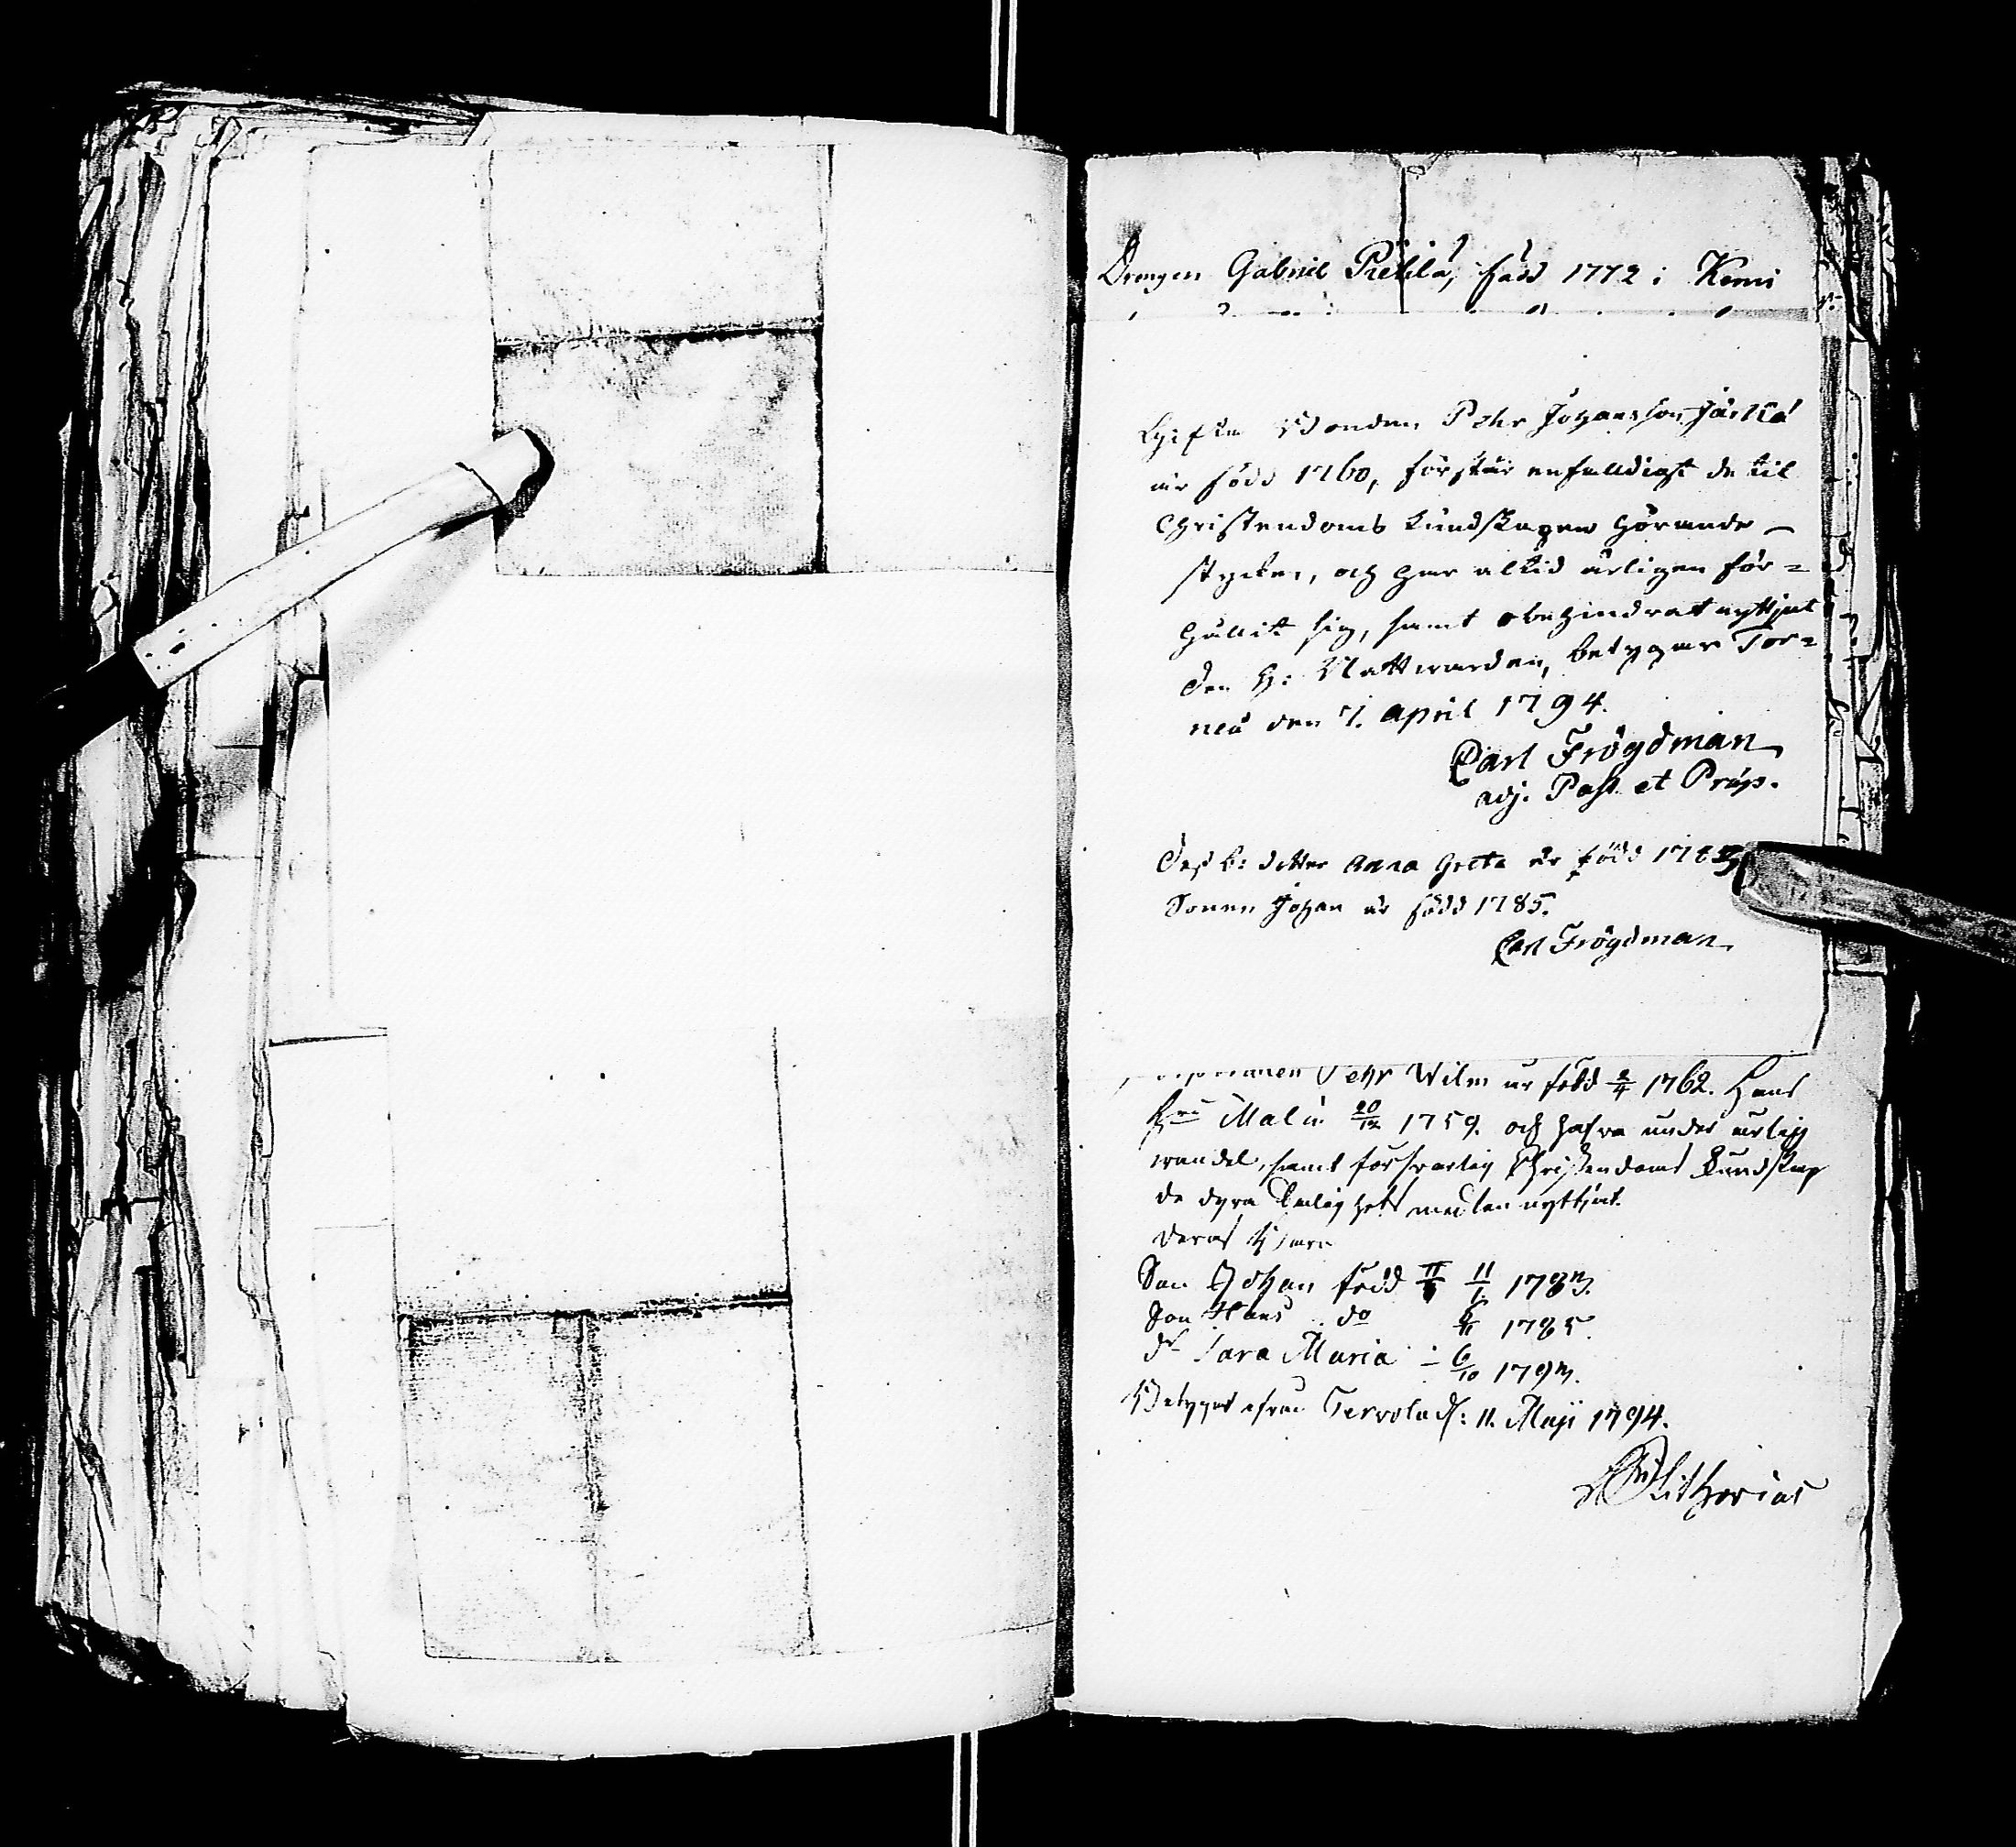 Drengen Gabriel Pietilä, född 1772 i Kemi
Gifte Bonden Pehr Johansson
är född 1760, förstår enfaldigst de til
Christendoms kundskapen hörande
stycken, och har altid ärligen för=
hållit sig, samt obehindrat nyttjat
den H: Nattwarden, betygar Tor=
neå den 7. April 1794.
Carl Frögdman
adj. Past. et Präp.
Des b: dotter Anna Greta är född
Sonen Johan är född 1785.
Carl Frögdman
Pehr Wilm är född 2/4 1762. Hans
Hu Malin 20/12 1759. och hafva under ärlig
wandel, samt förswarlig Christendoms Kundskap
de dyra Salighets medlen nyttjat.
Deras Barn
Son Johan född 11/1 1783.
Son Hans do 1785.
dr Sara Maria - 6/10 1793.
Betygas ifrån Tervola d: 11. Maji 1794.